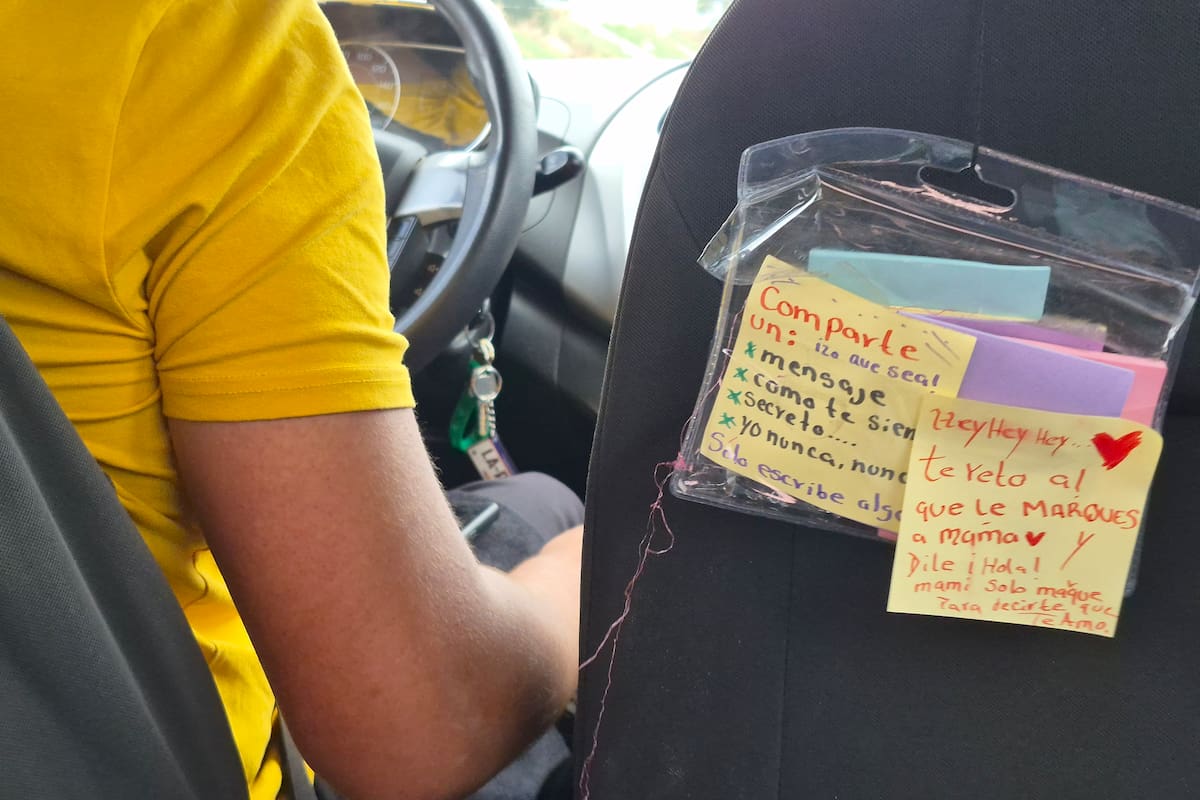 Comparte
un:
* mensaje
* como te sien
* secreto....
* yo nunca, nunc
Solo escribe algo
Hey Hey Hey... ♥
te reto al
que le MARQUES
a mama ♥ y
Dile ¡Hola!
mami solo maque
Para decirte que
Te Amo.
LA-